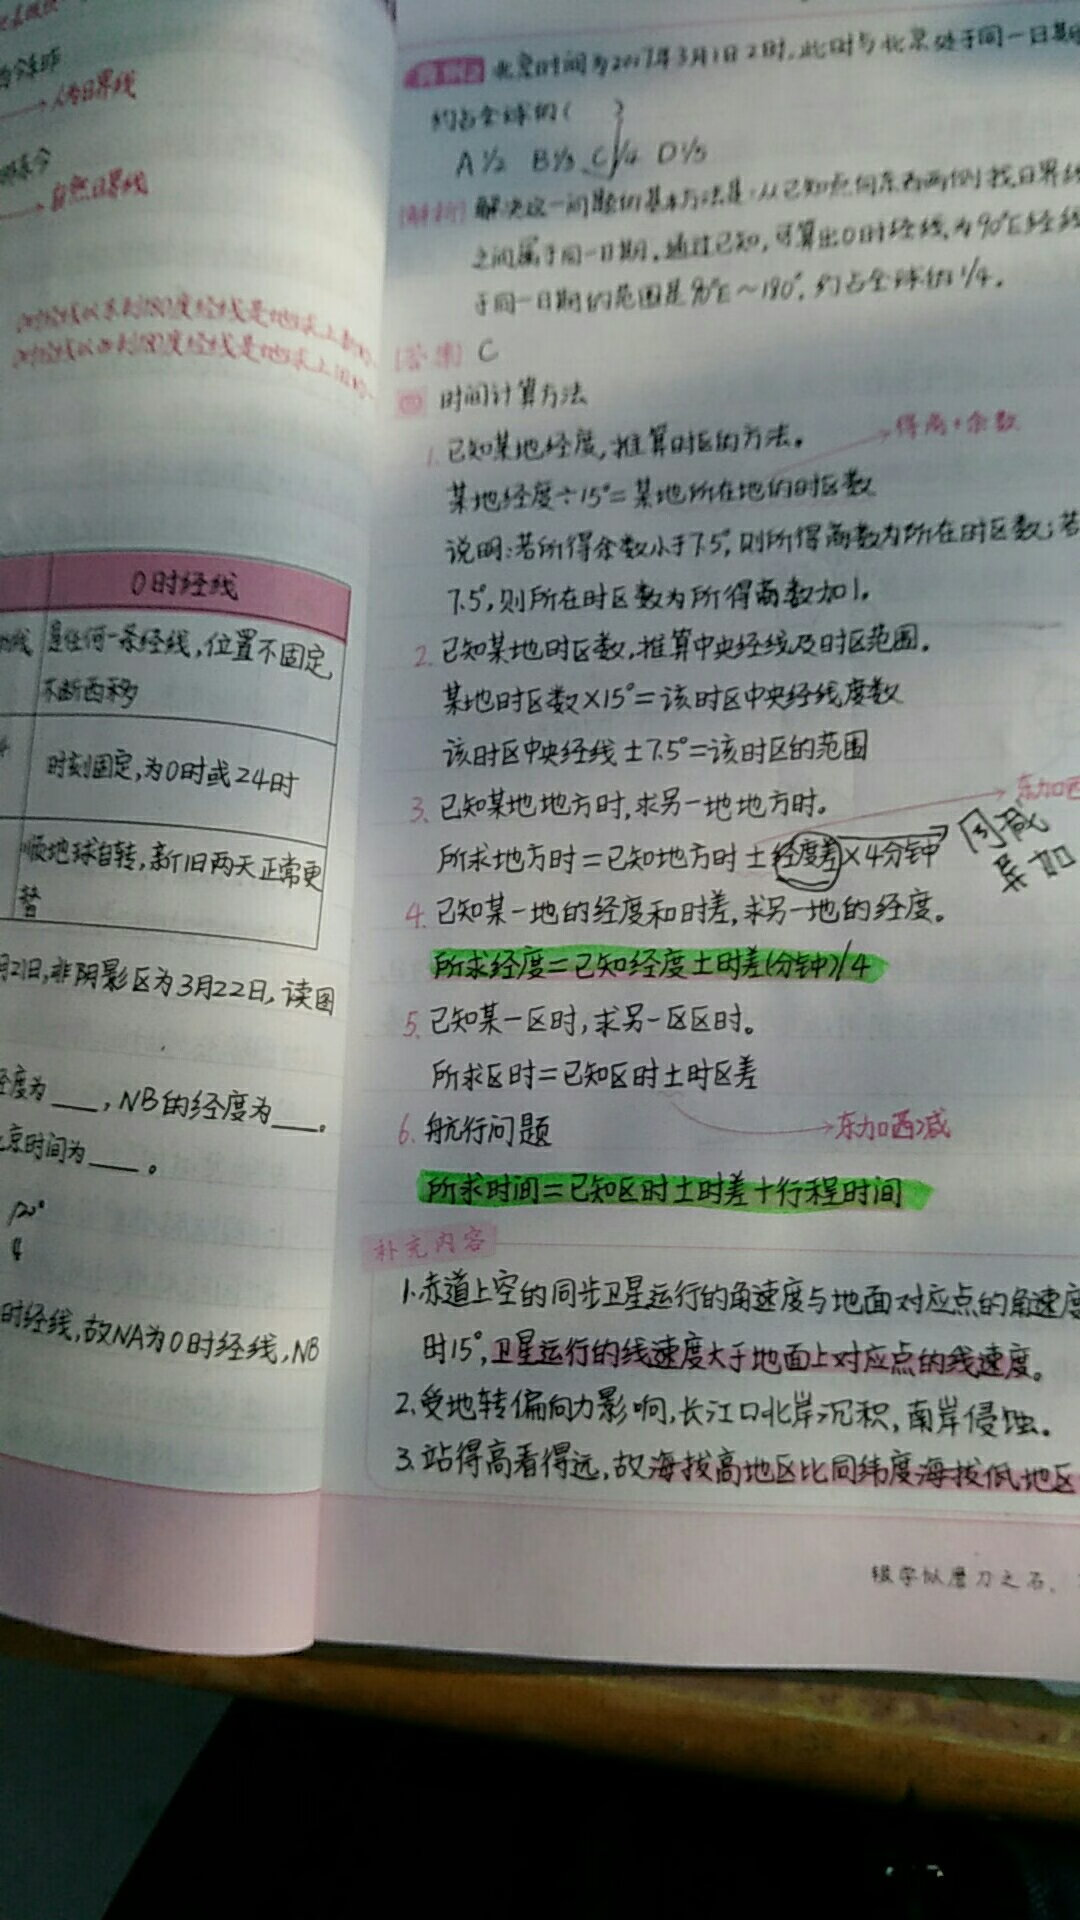 人为日界线
自然日界线
0时经线
是任何一条经线,位置不固定,
不断西移
时刻固定,为0时或24时
顺地球自转,新旧两天正常更
替
月21日,非阴影区为3月22日,读图
经度为___,NB的经度为___。
京时间为___。
120°
时经线,故NA为0时经线,NB
北京时间为2017年3月1日2时,此时与北京处于同一日期
约占全球的( )
A 1/2 B 1/3 C 1/4 D 1/5
[解析] 解决这一问题的基本方法是:从已知点向东西两侧找日界线
之间属于同一日期,通过已知,可算出0时经线,为90°E经线
于同一日期的范围是90°E~180°,约占全球的1/4。
[答案] C
时间计算方法
1.已知某地经度,推算时区的方法。
得商+余数
某地经度÷15°=某地所在地的时区数
说明:若所得余数小于7.5°,则所得商数为所在时区数;若
7.5°,则所在时区数为所得商数加1。
2.已知某地时区数,推算中央经线及时区范围。
某地时区数×15°=该时区中央经线度数
该时区中央经线±7.5°=该时区的范围
3.已知某地地方时,求另一地地方时。
东加西
所求地方时=已知地方时±经度差×4分钟
同减
异加
4.已知某一地的经度和时差,求另一地的经度。
所求经度=已知经度±时差(分钟)/4
5.已知某一区时,求另一区区时。
所求区时=已知区时±时区差
6.航行问题
东加西减
所求时间=已知区时±时差+行程时间
补充内容
1.赤道上空的同步卫星运行的角速度与地面对应点的角速度
时15°,卫星运行的线速度大于地面上对应点的线速度。
2.受地转偏向力影响,长江口北岸沉积,南岸侵蚀。
3.站得高看得远,故海拔高地区比同纬度海拔低地区
辍学似磨刀之石,